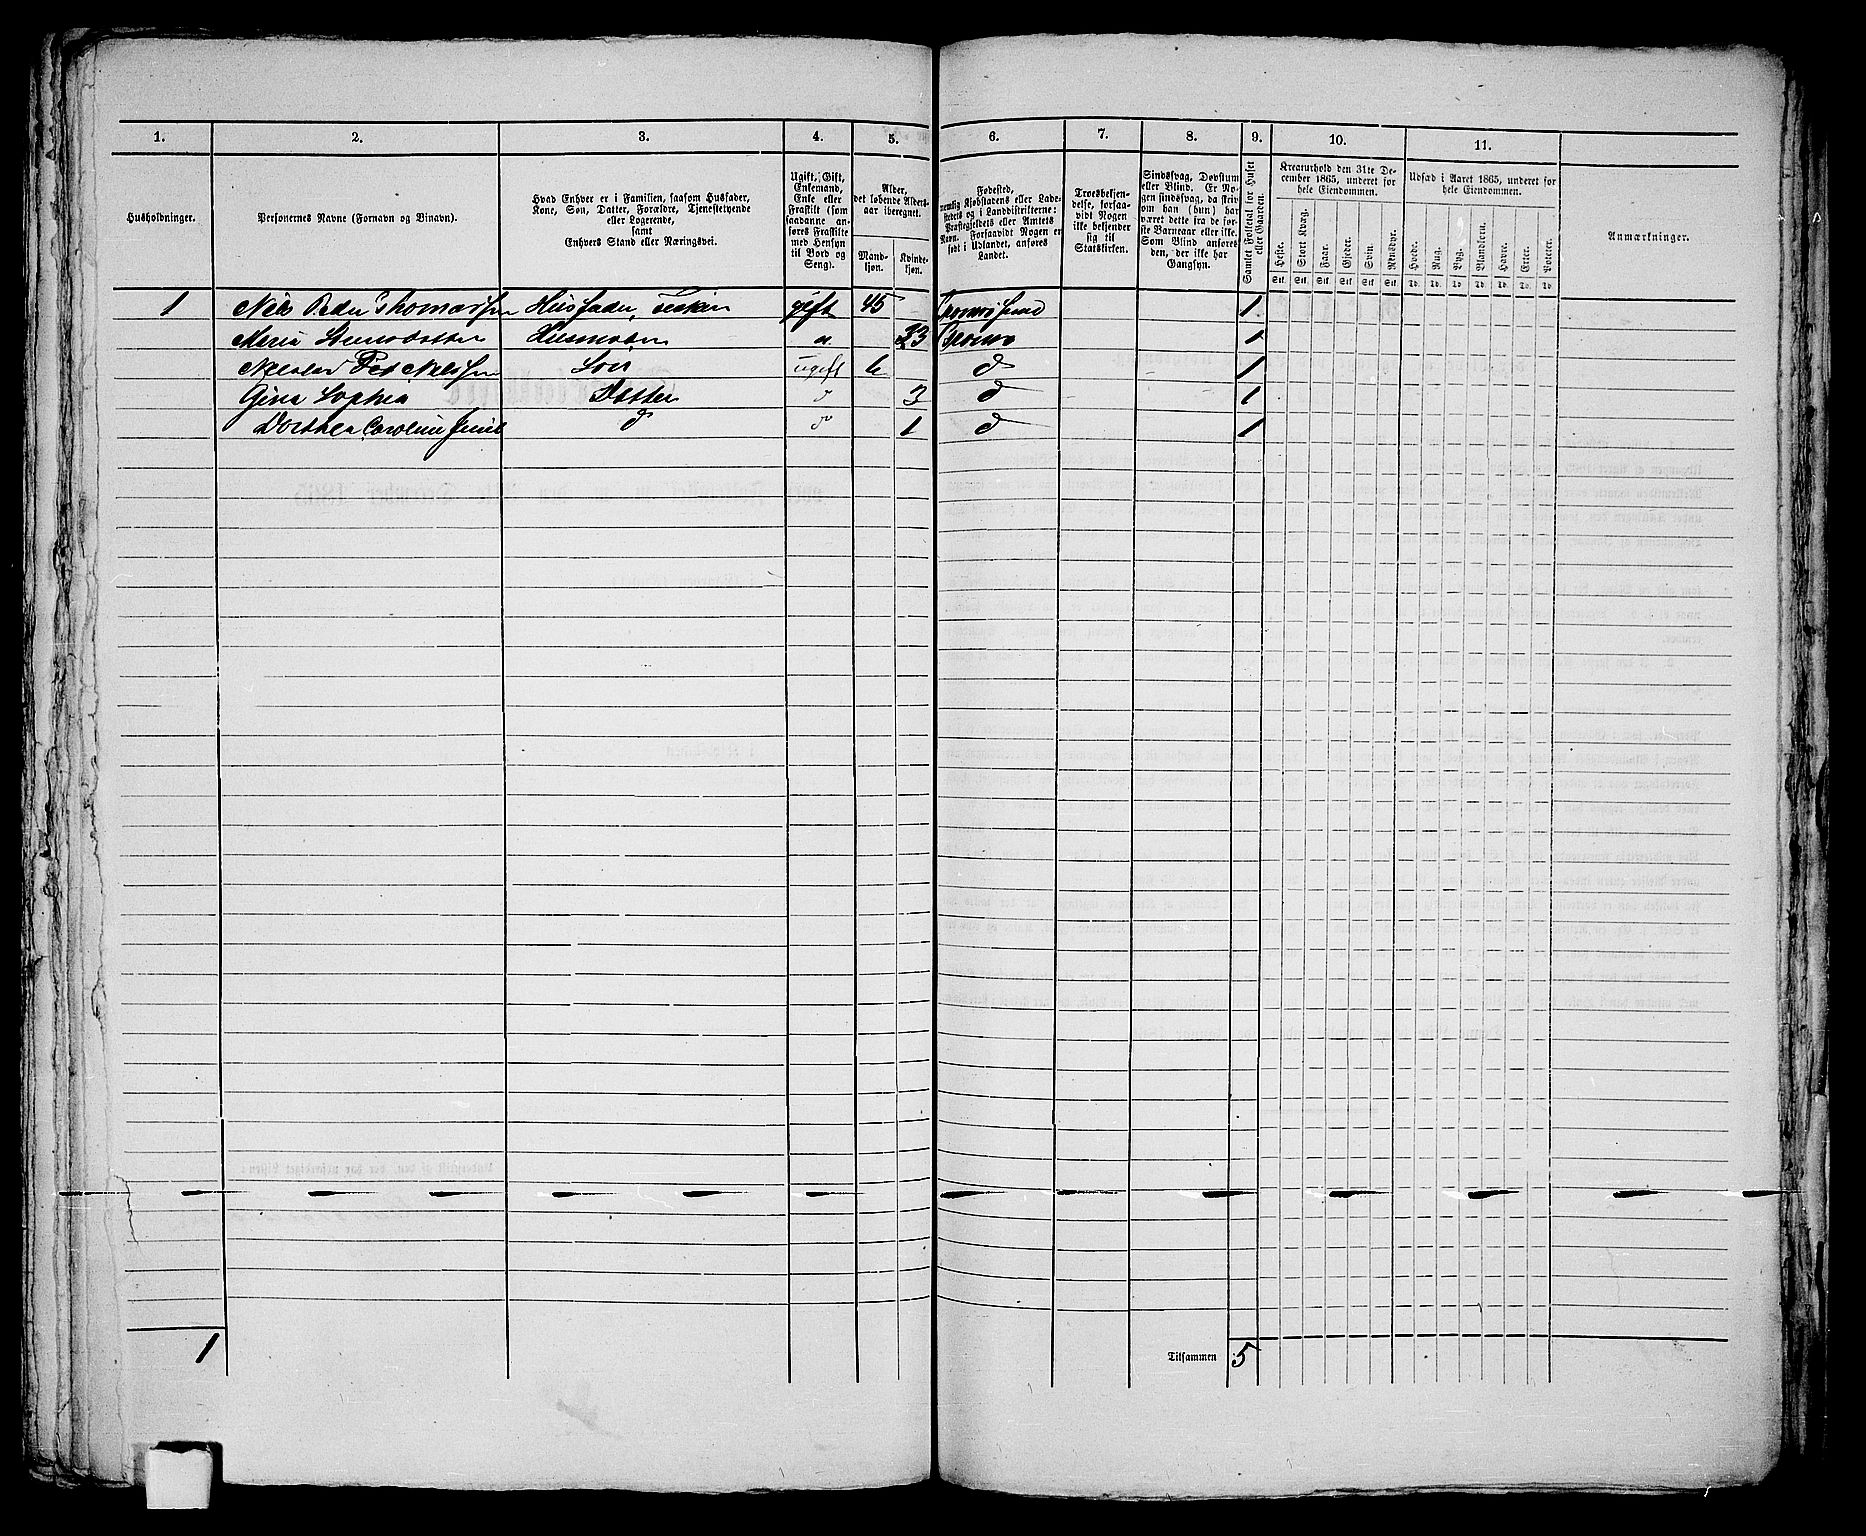 1. 2. 3. 4. 5. 6. 7. 8. 9. 10. 11.
Husholdninger.
Personernes Navne (Fornavn og Binavn).
Hvad Enhver er i Familien, saasom Husfader,
Kone, Søn, Datter, Forældre, Tjenestetyende
eller Logerende,
samt
Enhvers Stand eller Næringsvei.
Ugift, Gift,
Enkemand,
Enke eller
Fraskilt (som
saadanne an-
føres Fraskilte
med Hensyn
til Bord og
Seng).
Alder,
det løbende Alders-
aar iberegnet.
Mand-
kjøn.
Kvinde-
kjøn.
Fødested,
nemlig Kjøbstadens eller Lade-
stedets og i Landdistrikterne:
Præstegjeldets eller Amtets
Navn. Forsaavidt Nogen er
født i Udlandet, anføres
Landet.
Troesbekjen-
delse, forsaa-
vidt Nogen
ikke bekjender
sig til
Statskirken.
Sindssvag, Døvstum
eller Blind. Er No-
gen sindssvag, da skriv
om han (hun) har
været dette fra de før-
ste Barneaar eller ikke.
Som Blind anføres
den, der ikke har
Gangsyn.
Samlet Folketal for Huset
eller Gaarden.
Kreaturhold den 31te De-
cember 1865, underet for
hele Eiendommen.
Heste. Stort Kvæg. Faar. Gjeder. Svin. Rensdyr.
Stk. Stk. Stk. Stk. Stk. Stk.
Udsæd i Aaret 1865, underet for
hele Eiendommen.
Hvede. Rug. Byg. Blandkorn. Havre. Erter. Poteter.
Td. Td. Td. Td. Td. Td. Td.
Anmærkninger.
1 Niels Peder Thomassen Husfader, gift 45 1
Maria Husmoder 33 1
Søn ugift 6 d 1
Gina Sophia Datter d 3 d 1
Dorthea Caroline d d 1 d 1
1
Tilsammen 5